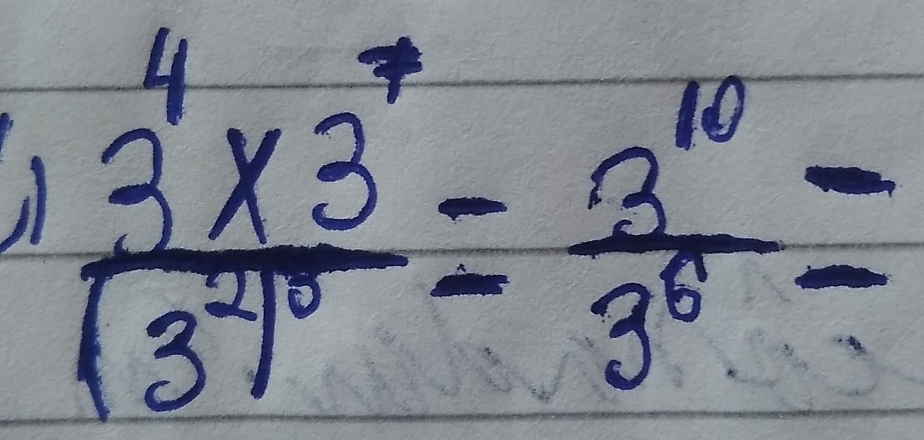 3^4 x 3^7 / (3^2)^3 = 3^10 / 3^6 =